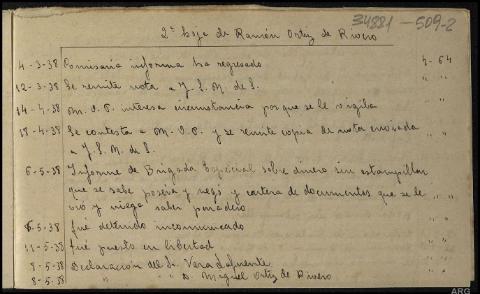 34881-509-2
2ª hoja de Ramón Ortiz de Rivero
4-3-38 Comisaria informa ha regresado 4-64
12-3-38 Se remite nota a J. S. M. de S. " "
14-4-38 M. O. P. interesa circunstancia porque se le vigilba " "
18-4-38 Se contesta a M. O. P. y se remite copia de nota enviada " "
a J. S. M. de S.
6-5-38 Informe de Brigada Especial sobre dinero sin estampillar
que se sabe poseia y negó y cartera de documentos que se le
vió y niega saber paradero " "
6-5-38 fué detenido incomunicado " "
11-5-38 fué puesto en libertad " "
8-5-38 Declaración del Sr. Vera Lafuente " "
8-5-38 " " D. Miguel Ortiz de Rivero " "
ARG